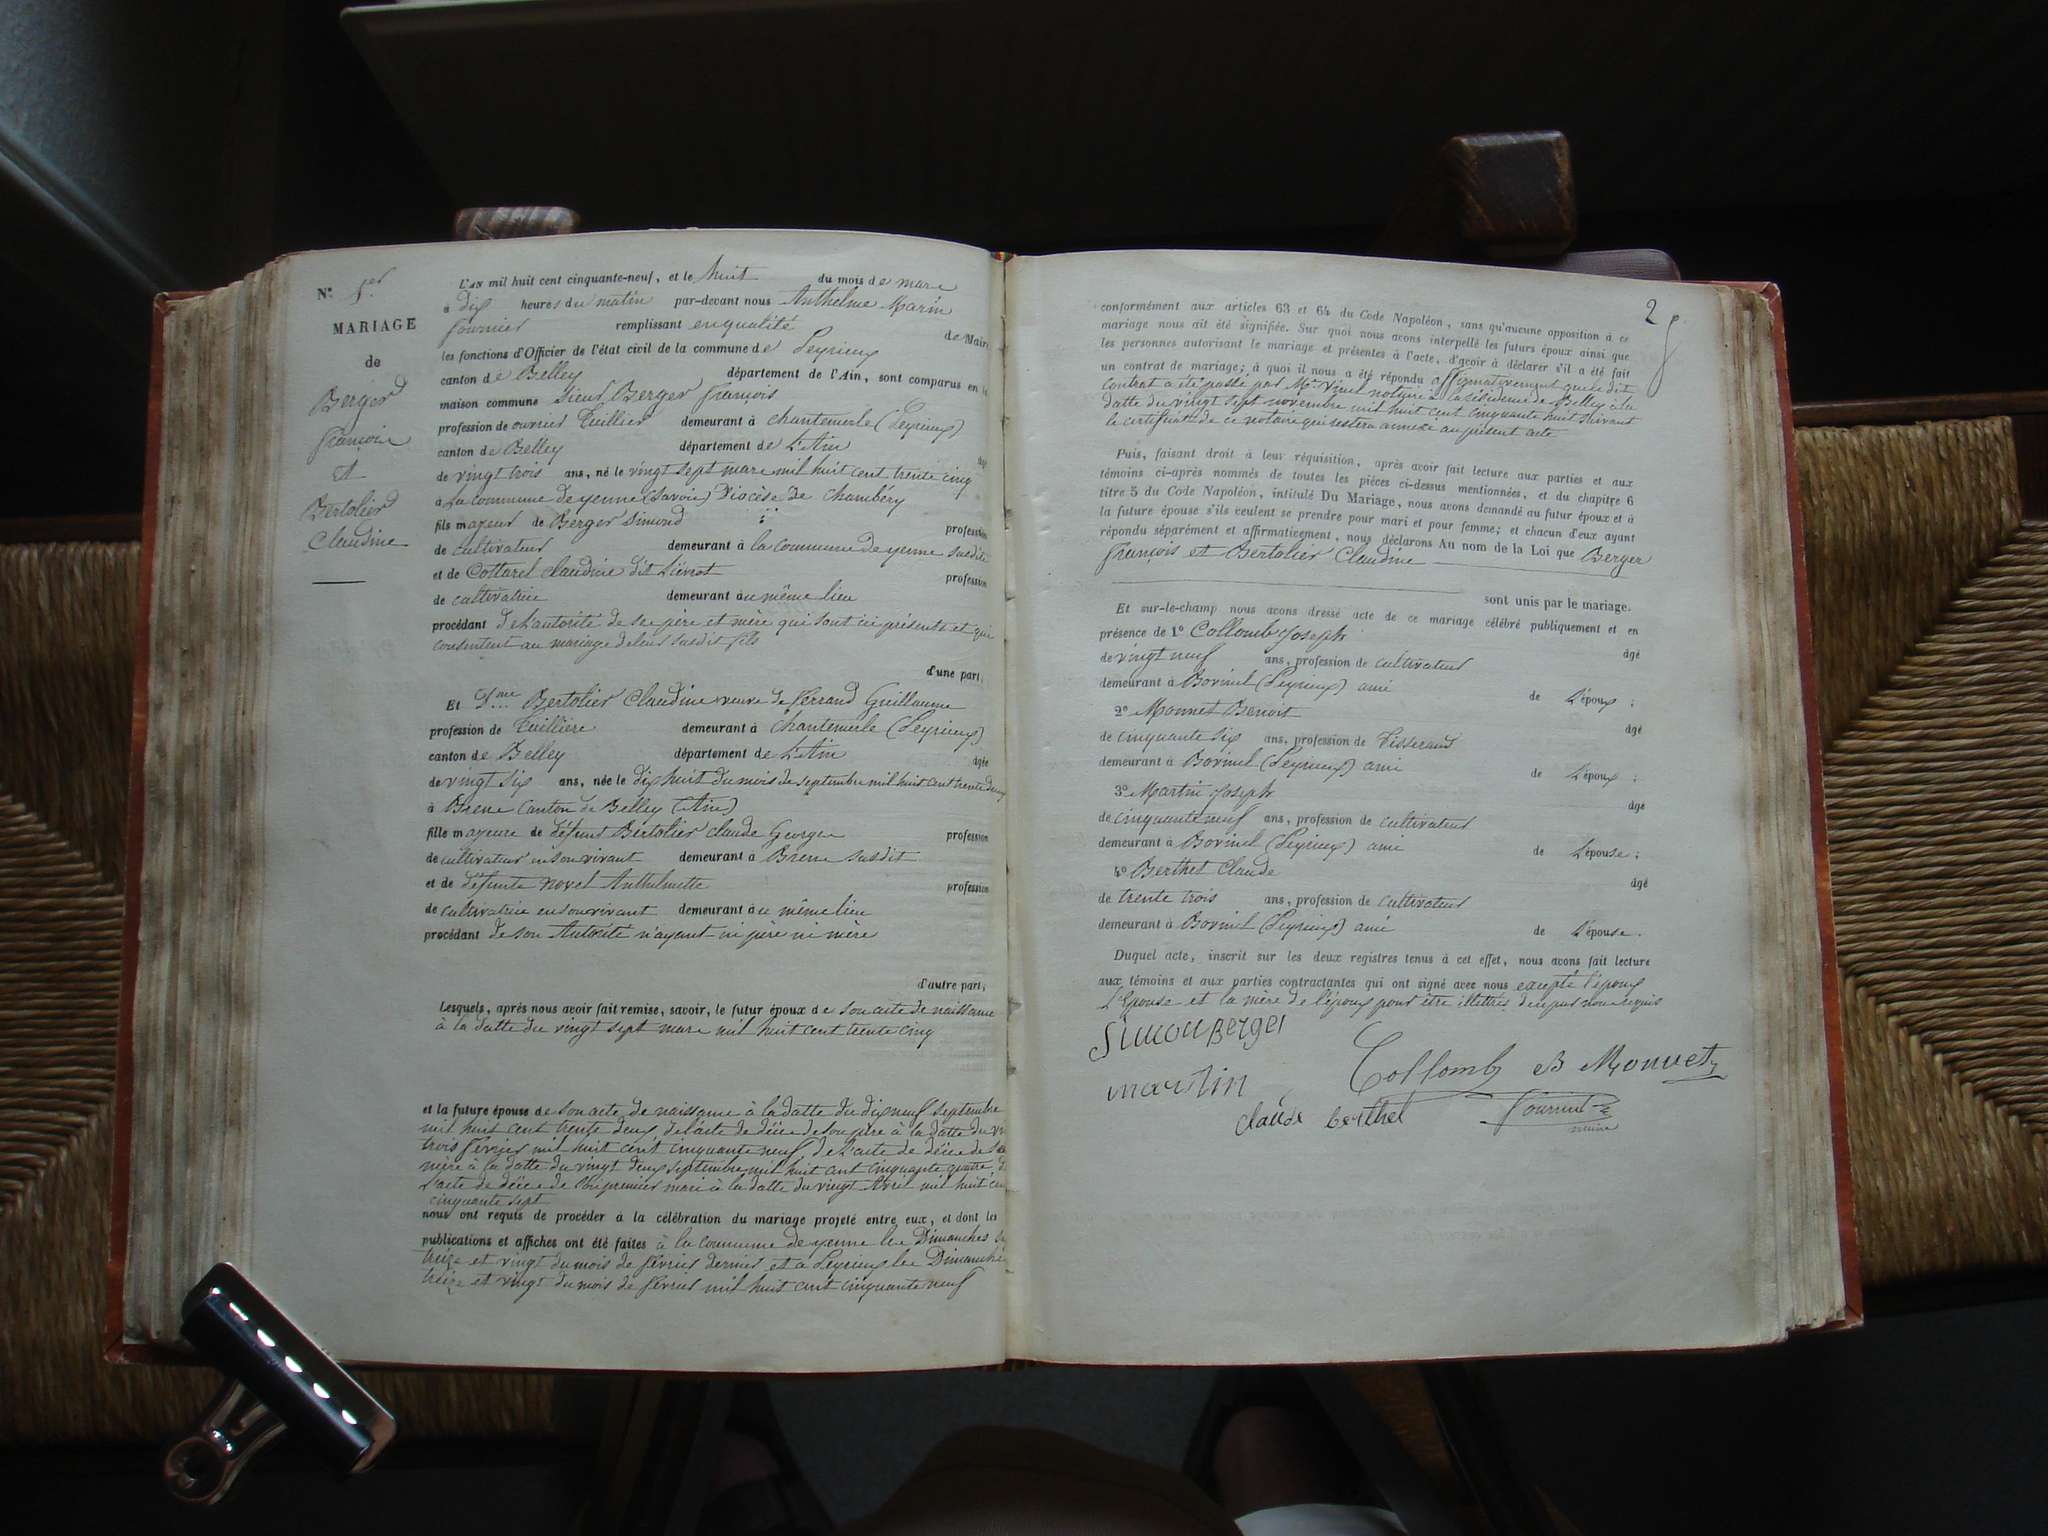 N° 1er
MARIAGE
de
Berger
François
et
Bertolier
Claudine
L'AN mil huit cent cinquante-neuf, et le huit du mois de mars
à dix heures du matin par-devant nous Anthelme Marin
Fournier remplissant en qualité de Maire
les fonctions d'Officier de l'état civil de la commune de Peyrieux
canton de Belley département de l'Ain, sont comparus en la
maison commune sieur Berger François
profession de ouvrier Tuillier demeurant à chantemerle (Peyrieux)
canton de Belley département de L'Ain âgé
de vingt trois ans, né le vingt sept mars mil huit cent trente cinq
à La commune de yenne (Savoie) Diocèse de Chambéry
fils majeur de Berger Simond profession
de cultivateur demeurant à la commune de yenne susdite
et de Cottarel Claudine dit Liévrot profession
de cultivatrice demeurant au même lieu
procédant de l'autorité de ses père et mère qui sont ici présents et qui
consentent au mariage de leur susdit fils
d'une part;
Et Dme Bertolier Claudine veuve de Ferrand Guillaume
profession de Tuillière demeurant à Chantemerle (Peyrieux)
canton de Belley département de L'Ain âgée
de vingt six ans, née le dix huit du mois de septembre mil huit cent trente deux
à Brens Canton de Belley (Ain)
fille majeure de défunt Bertolier Claude George profession
de cultivateur en son vivant demeurant à Brens susdit
et de défunte Novel Anthelmette profession
de cultivatrice en son vivant demeurant au même lieu
procédant de son Autorité n'ayant ni père ni mère
d'autre part;
Lesquels, après nous avoir fait remise, savoir, le futur époux de son acte de naissance
à la datte du vingt sept mars mil huit cent trente cinq
et la future épouse de son acte de naissance à la datte du dix neuf septembre
mil huit cent trente deux, de l'acte de décès de son père à la datte du
trois février mil huit cent cinquante neuf de l'acte de décès de sa
mère à la datte du vingt deux septembre mil huit cent cinquante quatre, de
l'acte de décès de son premier mari à la datte du vingt Avril mil huit cent
cinquante sept
nous ont requis de procéder à la célébration du mariage projeté entre eux, et dont les
publications et affiches ont été faites à la commune de yenne les Dimanches
treize et vingt du mois de février dernier et à Peyrieux les Dimanches
treize et vingt du mois de février mil huit cent cinquante neuf
2
conformément aux articles 63 et 64 du Code Napoléon, sans qu'aucune opposition à ce
mariage nous ait été signifiée. Sur quoi nous avons interpellé les futurs époux ainsi que
les personnes autorisant le mariage et présentes à l'acte, d'avoir à déclarer s'il a été fait
un contrat de mariage; à quoi il nous a été répondu affirmativement que le dit
contrat a été passé par Me notaire à la résidence de Belley à la
datte du vingt sept novembre mil huit cent cinquante huit suivant
le certificat de ce notaire qui restera annexé au présent acte
Puis, faisant droit à leur réquisition, après avoir fait lecture aux parties et aux
témoins ci-après nommés de toutes les pièces ci-dessus mentionnées, et du chapitre 6
titre 5 du Code Napoléon, intitulé Du Mariage, nous avons demandé au futur époux et à
la future épouse s'ils veulent se prendre pour mari et pour femme; et chacun d'eux ayant
répondu séparément et affirmativement, nous déclarons Au nom de la Loi que Berger
François et Bertolier Claudine
sont unis par le mariage.
Et sur-le-champ nous avons dressé acte de ce mariage célébré publiquement et en
présence de 1° Collomb Joseph âgé
de vingt neuf ans, profession de cultivateur
demeurant à Bovinel (Peyrieux) ami de L'époux;
2° Monnet Benoit âgé
de cinquante six ans, profession de Tisserand
demeurant à Bovinel (Peyrieux) ami de L'époux;
3° Martin Joseph âgé
de cinquante neuf ans, profession de cultivateur
demeurant à Bovinel (Peyrieux) ami de L'épouse;
4° Berthet Claude âgé
de trente trois ans, profession de cultivateur
demeurant à Bovinel (Peyrieux) ami de L'épouse.
Duquel acte, inscrit sur les deux registres tenus à cet effet, nous avons fait lecture
aux témoins et aux parties contractantes qui ont signé avec nous excepté l'époux
L'Epouse et la mère de l'époux pour être illettrés de ce par nous requis
Simon Berger
Collomb B Monnet
martin
claude berthet Fournier
maire